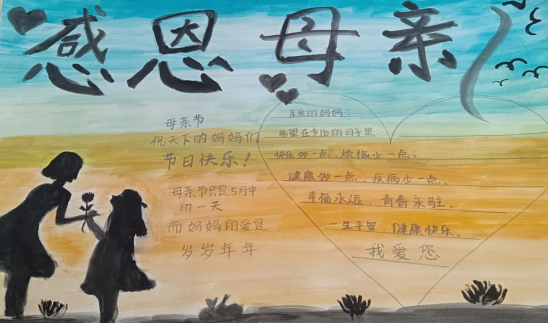 感恩母亲
母亲节
祝天下的妈妈们
节日快乐！
母亲节只是5月中
的一天
而妈妈的爱是
岁岁年年
亲爱的妈妈：
希望在今后的日子里
快乐多一点，烦恼少一点，
健康多一点，疾病少一点。
幸福永远，青春永驻。
一生平安，健康快乐。
我爱您